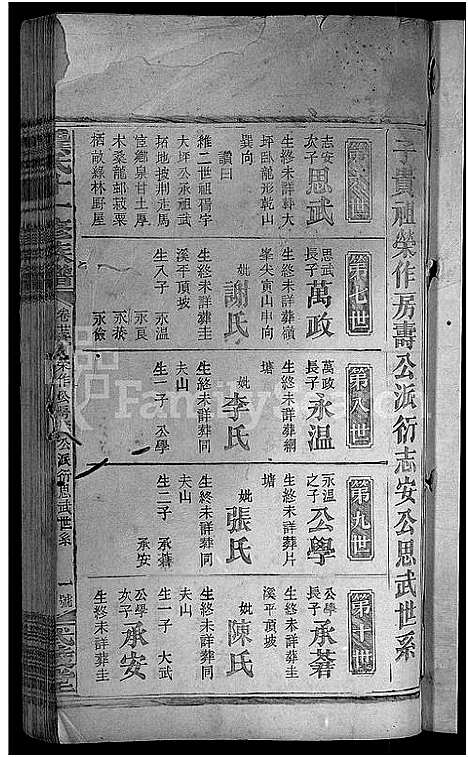 子貴祖榮作房壽公派衍志安公思武世系
第六世
志安
次子思武
生終未詳葬大
坪臥龍形乾山
巽向
讚曰
維二世祖揚宇
大坪公承祖武
拓地披荆走馬
宦鄉泉甘土厚
木桑龍邨菽粟
栖畝綠林野屋
第七世
思武
長子萬政
生終未詳葬嶺
峯尖寅山申向
妣謝氏
生終未詳葬圭
溪平頂坡
生八子 永溫
永良
永恭
永儉
第八世
萬政
長子永溫
生終未詳葬綱
塘
妣李氏
生終未詳葬同
夫山
生一子 公學
第九世
永溫
之子公學
生終未詳葬片
塘
妣張氏
生終未詳葬同
夫山
生二子 承蓍
承安
第十世
公學
長子承蓍
生終未詳葬圭
溪平頂坡
妣陳氏
生終未詳葬同
夫山
生一子 大武
公學
次子承安
生終未詳葬圭
氏十一修族譜
公派衍思武世系
一號
FamilySearch